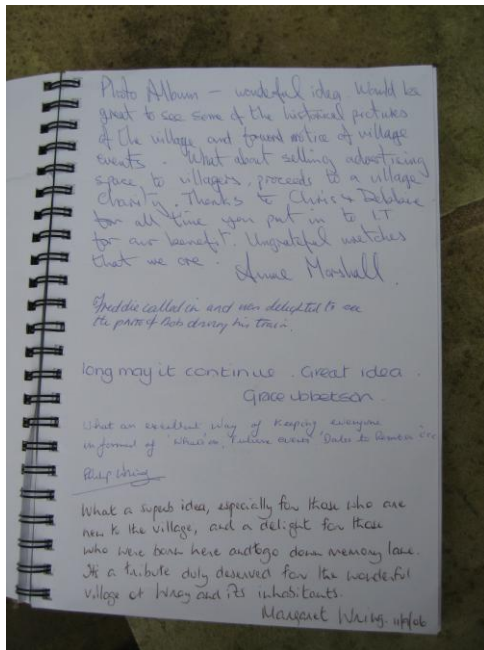 Photo Album – wonderful idea. Would be
great to see some of the historical pictures
of the village and forward notice of village
events. What about selling advertising
space to villagers, proceeds to a village
charity. Thanks to Chris & Debbie
for all time you put in to I.T
for our benefit. Ungrateful wretches
that we are. Anne Marshall.
Freddie called in and was delighted to see
the photo of Bob driving his train.
long may it continue. Great idea.
Grace Ibbetson.
What an excellent way of keeping everyone
informed of 'What's on, Future events' Dates to Remember etc
Philip Wring
What a superb idea, especially for those who are
new to the village, and a delight for those
who were born here and to go down memory lane.
It's a tribute duly deserved for the wonderful
village of Wray and its inhabitants.
Margaret Wring.